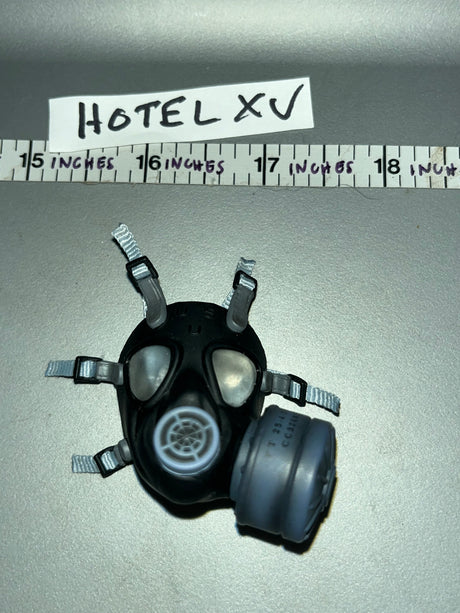 HOTEL XV
15 INCHES 16 INCHES 17 INCHES 18 INCH
U